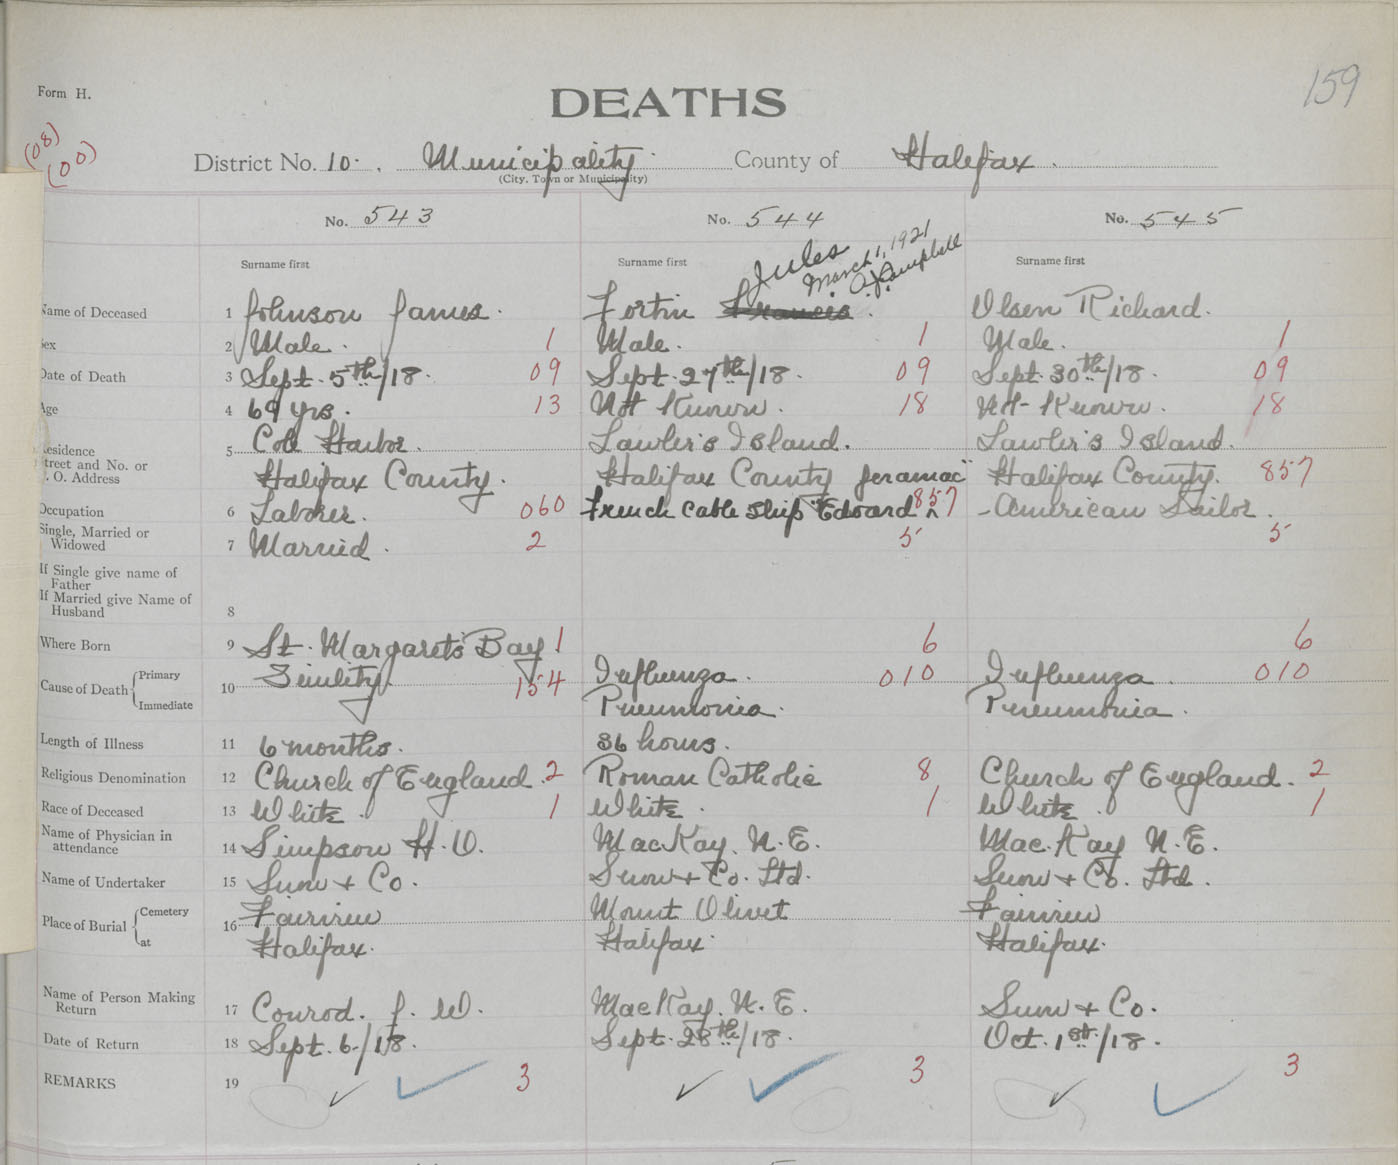 159
Form H.
DEATHS
(08)
(00)
District No. 10. Municipality. County of Halifax.
(City, Town or Municipality)
No. 543 No. 544 No. 545
Jules March 1, 1921 Campbell
Surname first Surname first Surname first
Name of Deceased 1 Johnson James. Fortin Francis. Olsen Richard.
Sex 2 Male. 1 Male. 1 Male. 1
Date of Death 3 Sept. 5th/18. 09 Sept. 27th/18. 09 Sept. 30th/18. 09
Age 4 69 yrs. 13 Not Known. 18 Not Known. 18
Residence 5 Cole Harbor. Lawler's Island. Lawler's Island.
Street and No. or
P. O. Address Halifax County. Halifax County Jeramac" Halifax County. 857
Occupation 6 Laborer. 060 French Cable Ship "Edouard ^ 857 - American Sailor.
Single, Married or
Widowed 7 Married. 2 5 5
If Single give name of
Father
If Married give Name of
Husband 8
Where Born 9 St. Margarets Bay 1 6 6
Cause of Death Primary 10 Senility 154 Influenza. 010 Influenza. 010
Immediate Pneumonia. Pneumonia.
Length of Illness 11 6 months. 36 hours.
Religious Denomination 12 Church of England. 2 Roman Catholic 8 Church of England. 2
Race of Deceased 13 White. 1 White. 1 White. 1
Name of Physician in
attendance 14 Simpson H. D. MacKay. N. E. Mac.Kay N. E.
Name of Undertaker 15 Snow + Co. Snow + Co. Ltd. Snow + Co. Ltd.
Place of Burial Cemetery 16 Fairview Mount Olivet Fairview
at Halifax. Halifax. Halifax.
Name of Person Making
Return 17 Conrod. J. W. MacKay. N. E. Snow + Co.
Date of Return 18 Sept. 6./18. Sept. 28th/18. Oct. 1st/18.
REMARKS 19 3 3 3